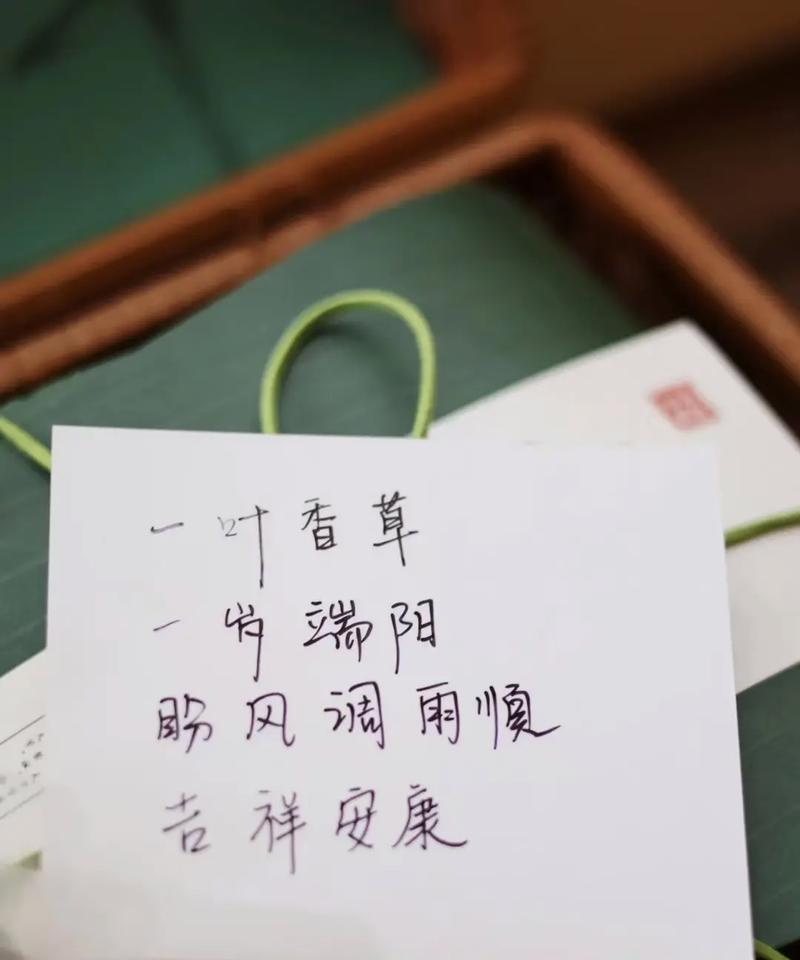 一叶香草
一岁端阳
盼风调雨順
吉祥安康